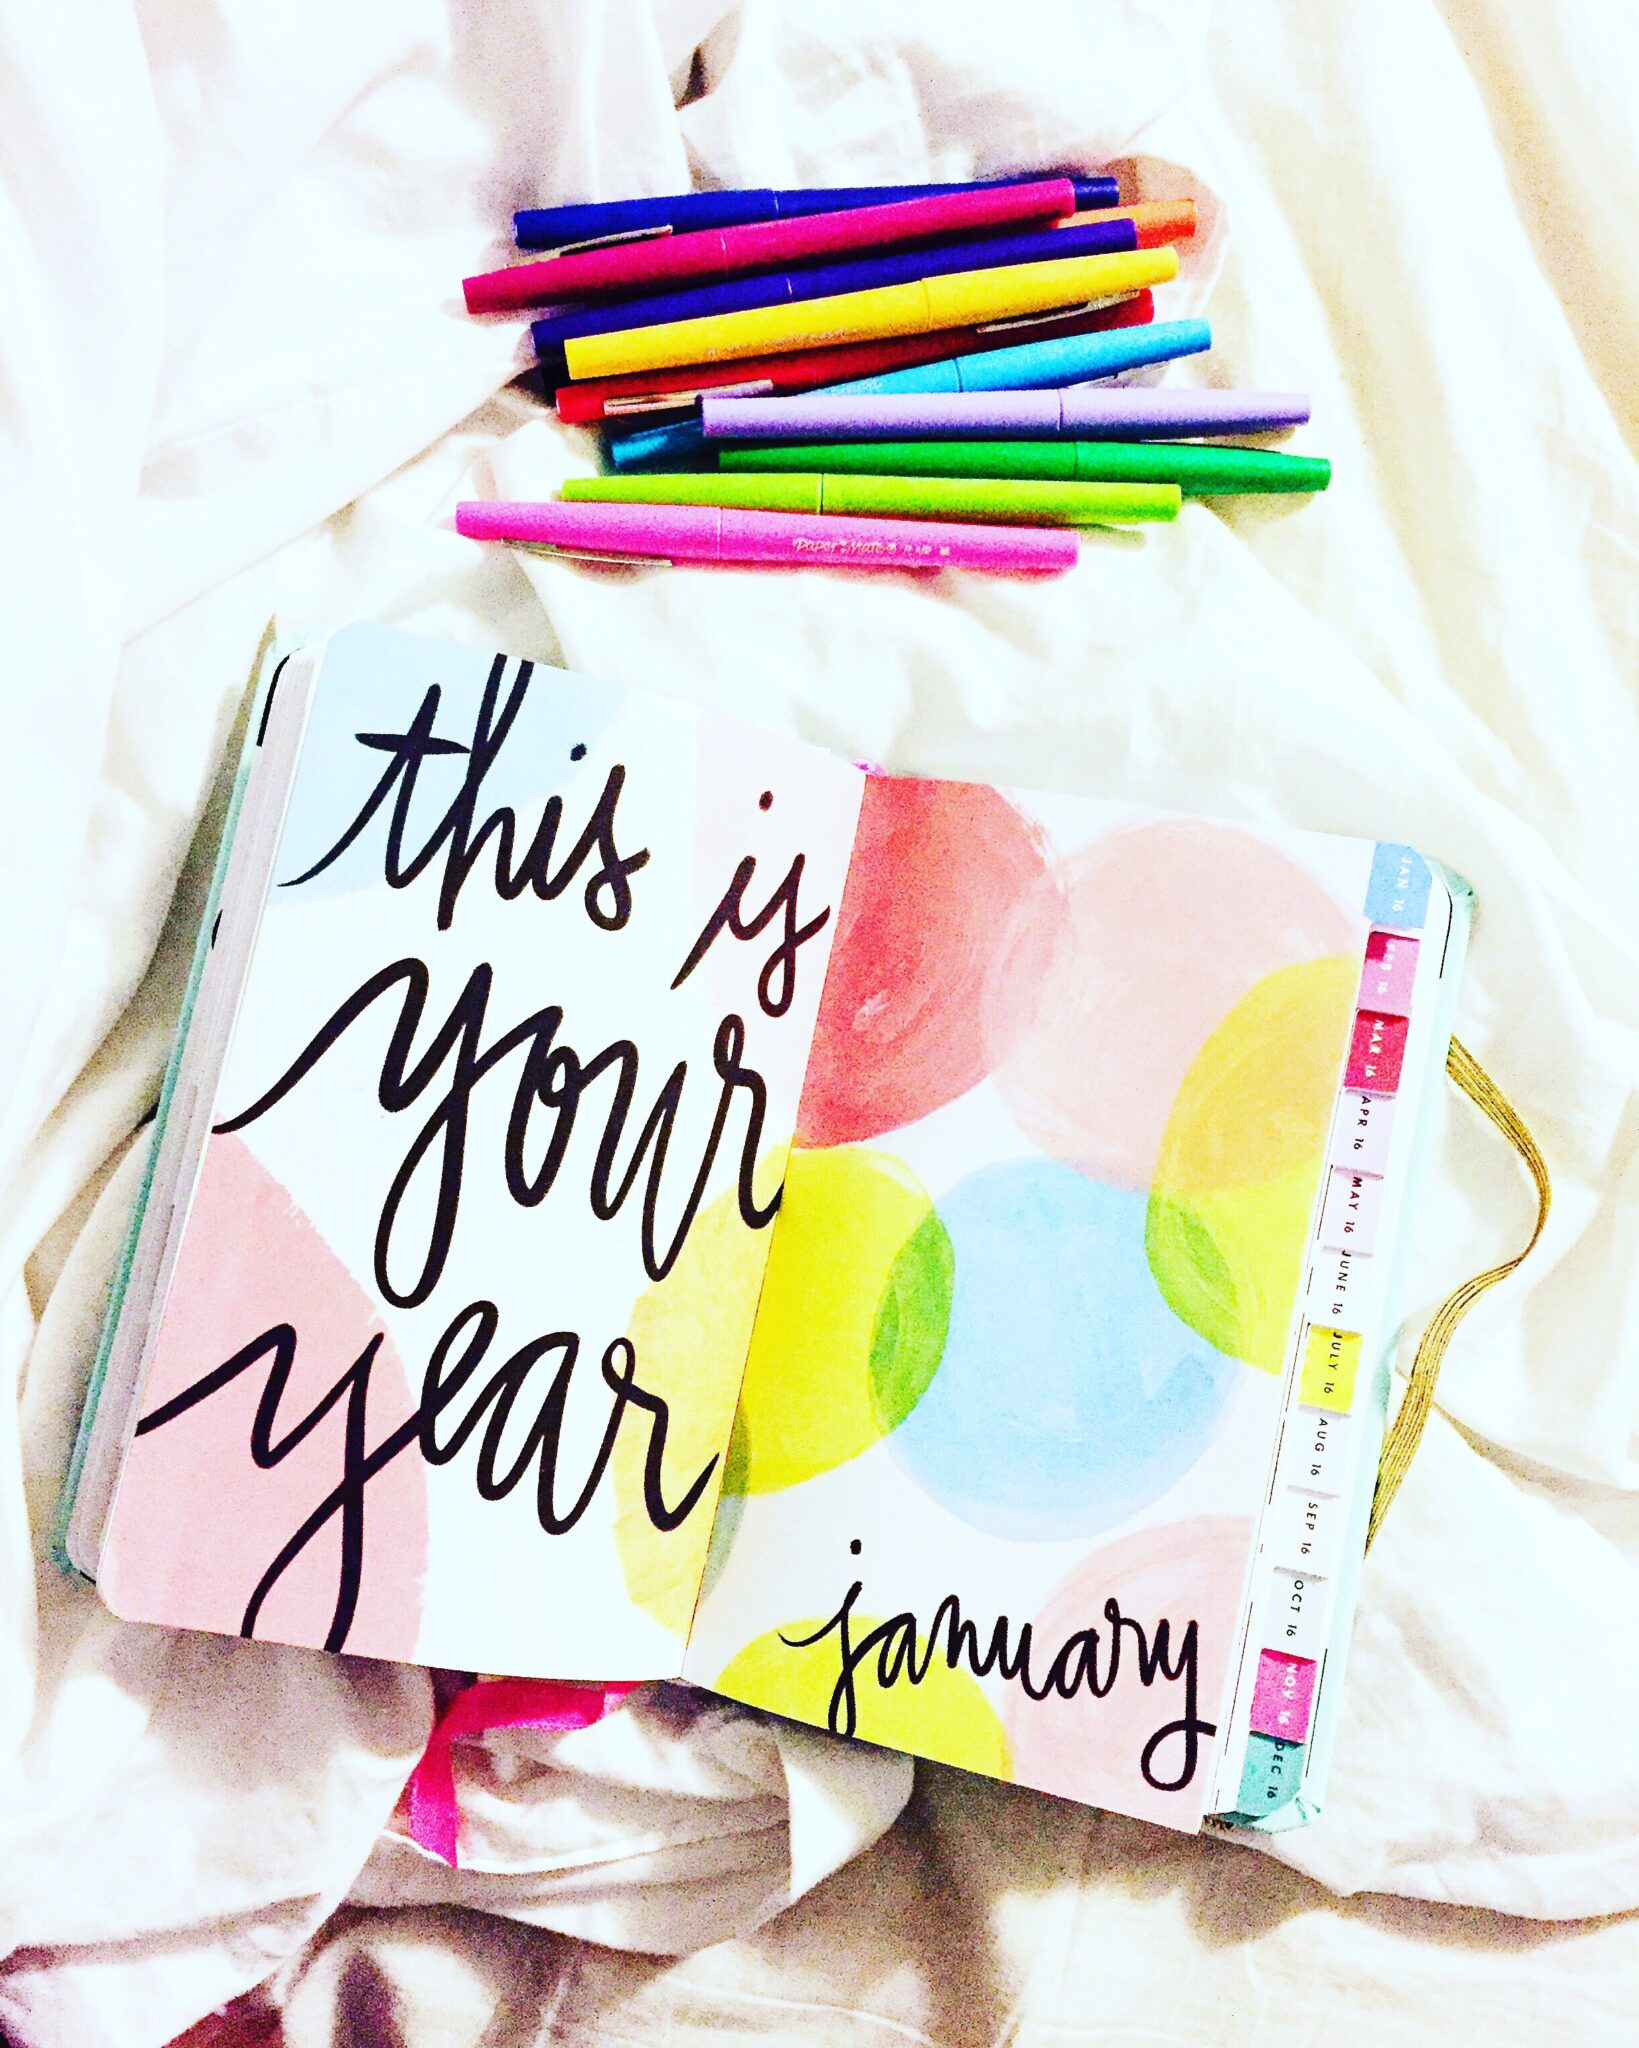 Paper Mate
this is
your
year
january
JAN 16
FEB 16
MAR 16
APR 16
MAY 16
JUNE 16
JULY 16
AUG 16
SEP 16
OCT 16
NOV 16
DEC 16